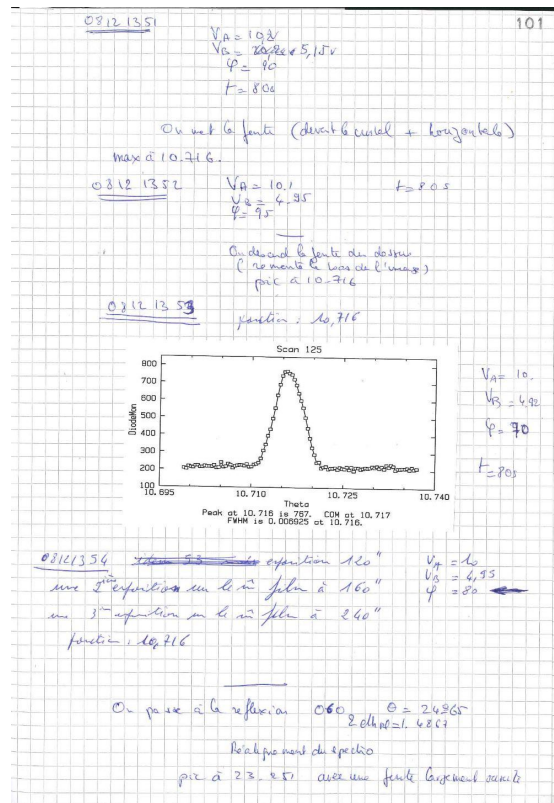 101
08121351
VA = 10,2
VB = 5,15v
φ = 90
t = 80s
On met la fente (devant le cristal + horizontale)
max à 10.716.
08121352 VA = 10.1 t = 80s
VB = 4.95
φ = 95
On descend la fente du dessus
(remonte le bas de l'image)
pic à 10.716
08121353 position : 10,716
Scan 125
DiodeMon
800
700
600
500
400
300
200
100
10.695 10.710 10.725 10.740
Theta
Peak at 10.716 is 767. COM at 10.717
FWHM is 0.006925 at 10.716.
VA = 10.
VB = 4.92
φ = 70
t = 80s
08121354 exposition 120"
une 2ième exposition sur le m film à 160"
une 3ème exposition sur le m film à 240"
position : 10,716
VA = 10
VB = 4,95
φ = 80
On passe à la reflexion 060 θ = 24.965
2 dhkl = 1.4867
Réalignement du spectro
pic à 23.251 avec une fente largement ouverte